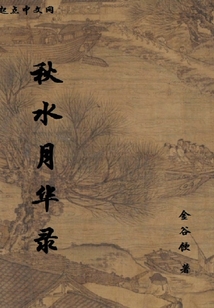 起点中文网
秋水月华录
金谷饮 著